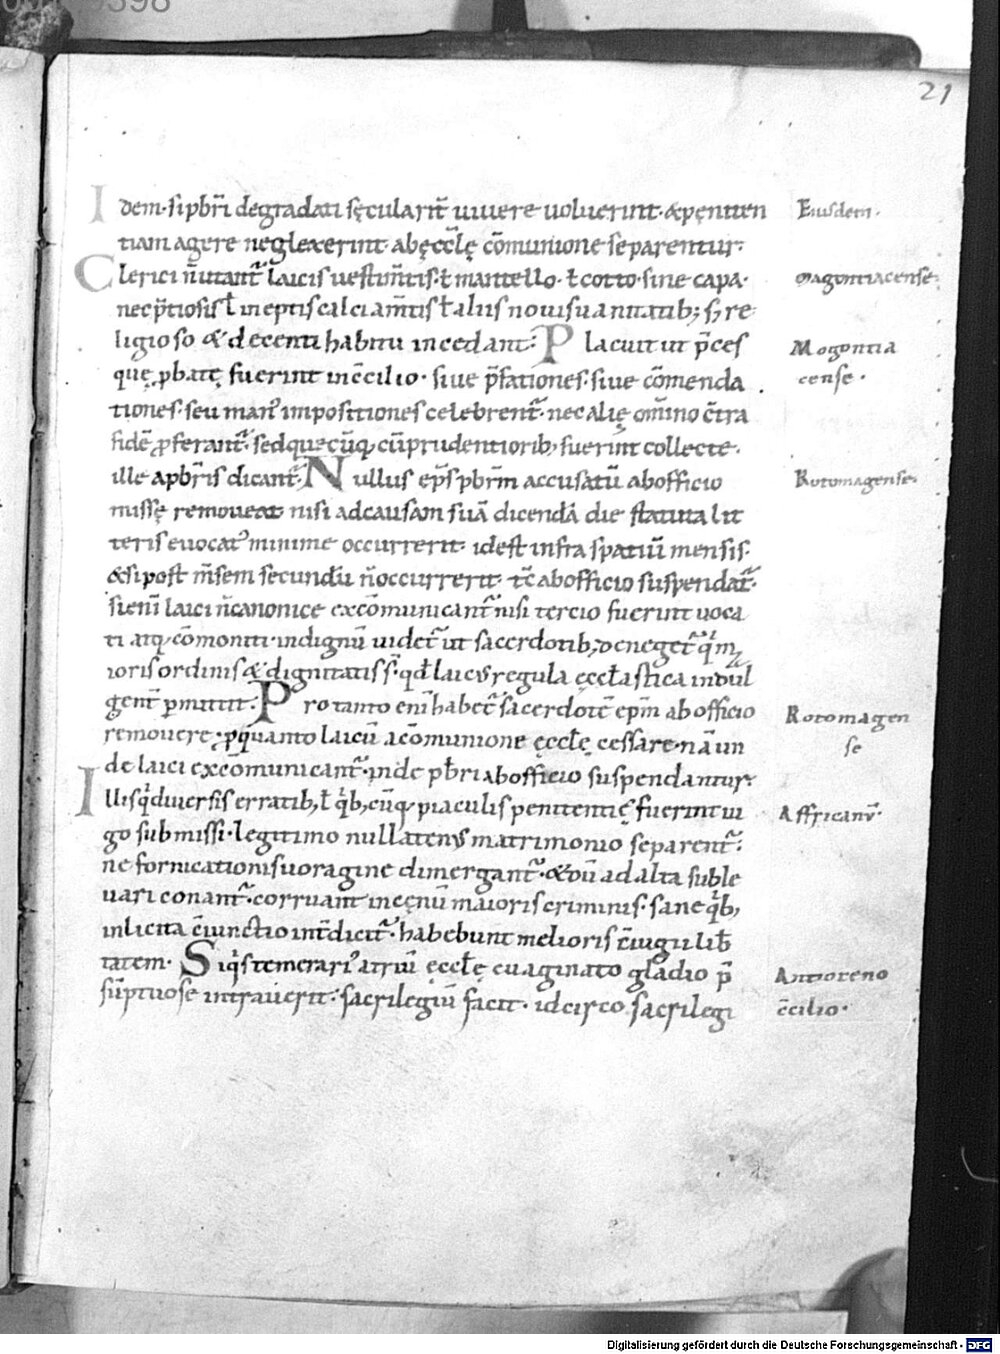 21
Idem· si pbr̄i degradati sęculariter̄ uiuere uoluerint· & pęniten Eiusdem·
tiam agere neglexerint· ab ęccl̄ę cōmunione separentur·
Clerici n̄ utant̄ laicis uestim̄tis· ł mantello· ł cotto· sine capa· Magontiacense·
nec p̄tiosis ł ineptis calciam̄tis ł aliis nouis uanitatib; s; re
ligioso & decenti habitu incedant· Placuit ut p̄ces Mogontia
quę p̱batę fuerint in c̄cilio· siue p̄fationes· siue cōmenda cense·
tiones· seu man᾽ impositiones celebrent̄· nec alię om̄ino c̄tra
fidē ꝓferant̄· sed quęcūq; cū prudentiorib; fuerint collecte·
ille a pbr̄is dicant̄· Nullus ep̄s pbr̄m accusatū ab officio Rotomagense·
missę remoueat nisi ad causam suā dicendā die statuta lit
teris euocat᾽ minime occurrerit· id est infra spatiū mensis·
& si post m̄sem secundū n̄ occurrerit· tc̄ ab officio suspendat̄·
si eni laici n̄ canonice excōmunicant̄ nisi tercio fuerint uoca
ti atq; cōmoniti· indignū uidet̄ ut sacerdotib; deneget̄ q᷑ m
ioris ordinis & dignitatis s̄· qd̄ laicis regula ęccl̄astica indul
gent̄ ꝑmittit· Pro tanto eni habet̄ sacerdotē ep̄m ab officio Rotomagen
remouere· ꝓ quanto laicū a cōmunione ęccl̄ę cessare· nā un se
de laici excōmunicant̄· inde pbr̄i ab officio suspendantur·
Illis q᷑ diuersis erratib; ł q᷑b; cūq; piaculis penitentię fuerint ui Affricanū·
go submissi· legitimo nullaten᾽ matrimonio separent̄·
ne fornicationis uoragine dimergant̄· & dū ad alta suble
uari conant̄· corruant in cęnū maioris criminis· sane q᷑b;
inlicita c̄iunctio int̄dicit̄· habebunt melioris c̄iugii lib̄
tatem· Siq᷑s temerari᾽ atriū ęccl̄ę euaginato gladio p̄ Antioreno
sūptuose intrauerit· sacrilegiū facit· idcirco sacrilegi c̄cilio·
Digitalisierung gefördert durch die Deutsche Forschungsgemeinschaft · DFG